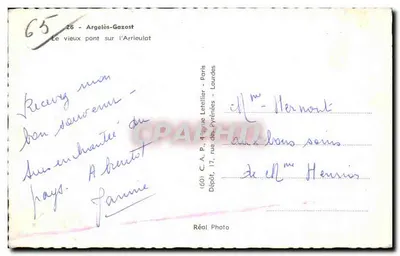 65
26 - Argelès-Gazost
Le vieux pont sur l'Arrieulat
Recevez mon
bon souvenir -
Suis enchantée du
pays. A bientôt
1601 C. A. P., 4 rue Letellier - Paris
Dépôt, 17, rue des Pyrénées - Lourdes
Mme Hermont
aux bons soins
de Mme
Réal Photo